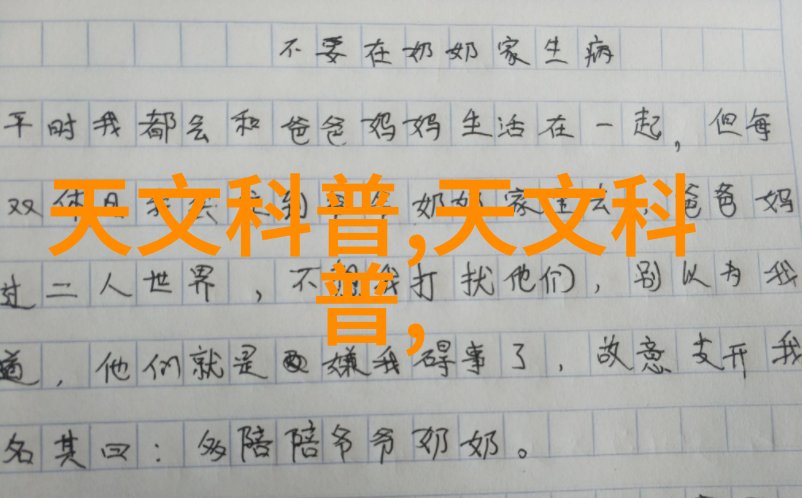 不要在奶奶家生病
平时我都会和爸爸妈妈生活在一起，但每
双休 奶奶家 去，爸爸妈
天文科普,天文科
过二人世界，不 我打扰他们，别以为我
普,
道，他们就是嫌我碍事了，故意支开我
名其曰：多陪陪爷爷奶奶。